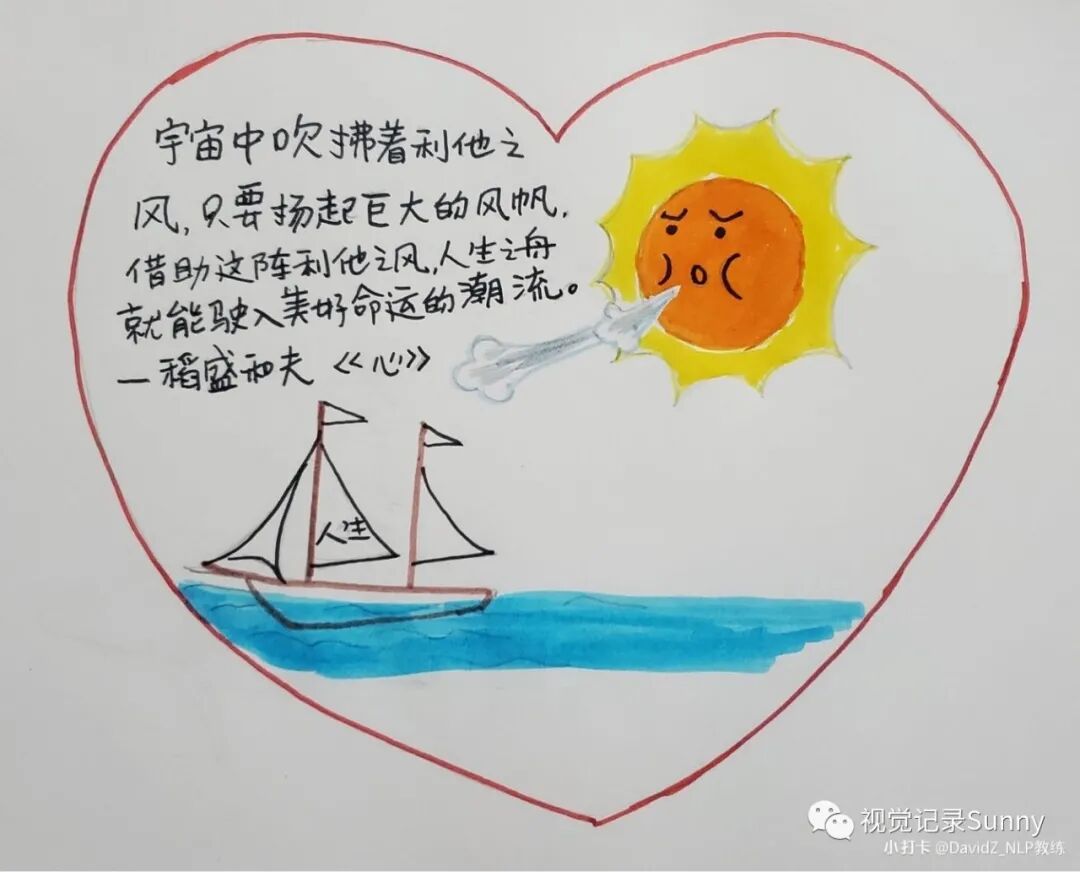 宇宙中吹拂着利他之
风,只要扬起巨大的风帆,
借助这阵利他之风,人生之舟
就能驶入美好命运的潮流。
—稻盛和夫《心》
人生
视觉记录Sunny
小打卡 @DavidZ_NLP教练